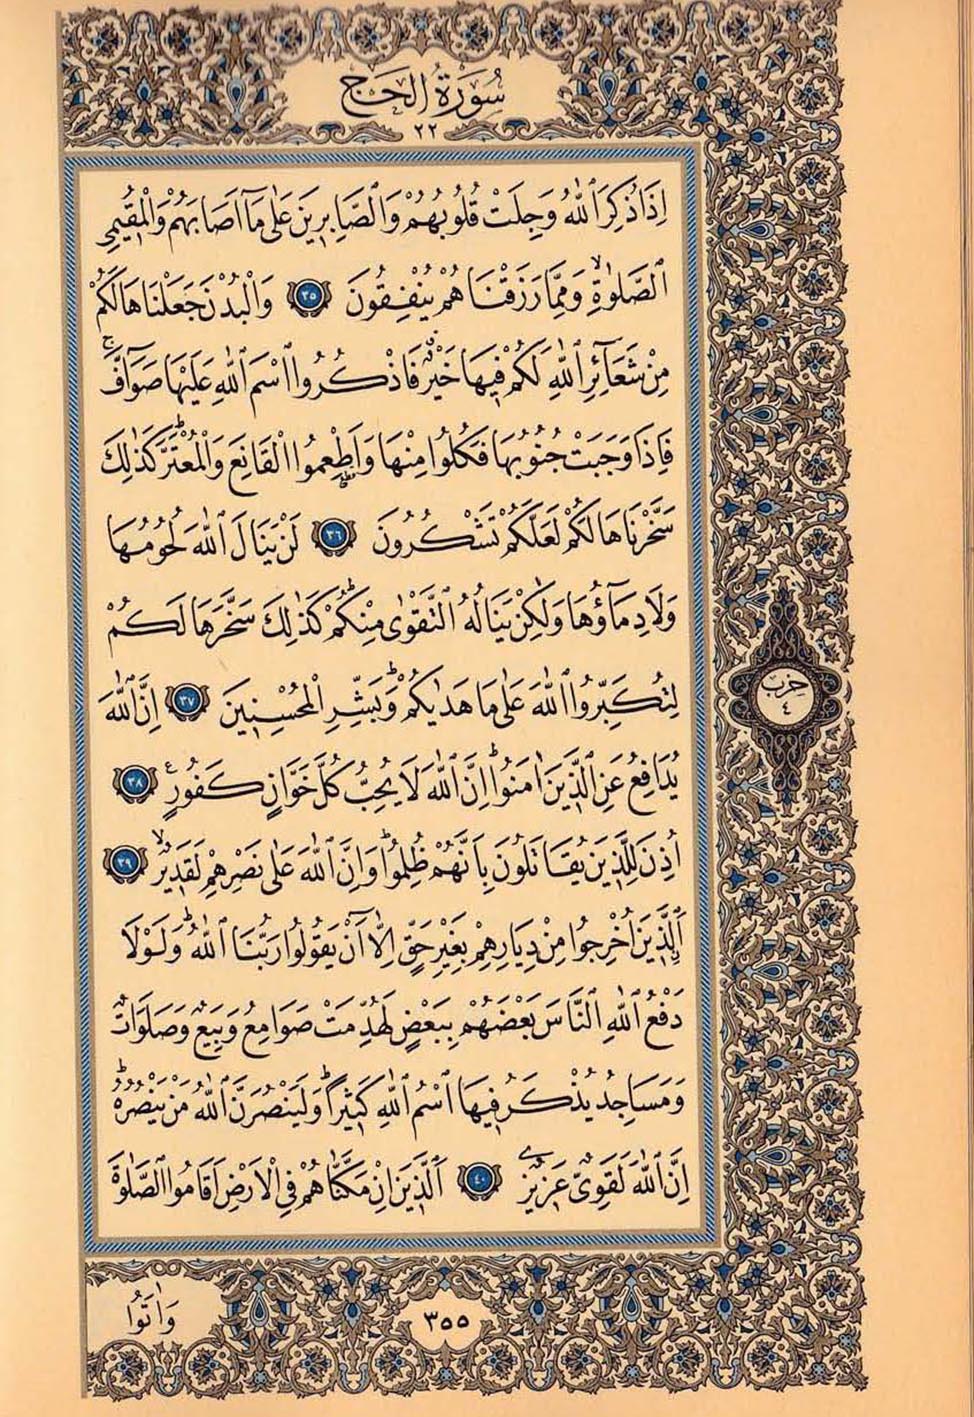 سُورَةُ الْحَجِّ
٢٢
اِذَا ذُكِرَ اللّٰهُ وَجِلَتْ قُلُوبُهُمْ وَالصَّابِرِينَ عَلٰى مَٓا اَصَابَهُمْ وَالْمُقِيمِي
الصَّلٰوةِۙ وَمِمَّا رَزَقْنَاهُمْ يُنْفِقُونَ ٣٥ وَالْبُدْنَ جَعَلْنَاهَا لَكُمْ
مِنْ شَعَٓائِرِ اللّٰهِ لَكُمْ فِيهَا خَيْرٌۗ فَاذْكُرُوا اسْمَ اللّٰهِ عَلَيْهَا صَوَٓافَّۚ
فَاِذَا وَجَبَتْ جُنُوبُهَا فَكُلُوا مِنْهَا وَاَطْعِمُوا الْقَانِعَ وَالْمُعْتَرَّۜ كَذٰلِكَ
سَخَّرْنَاهَا لَكُمْ لَعَلَّكُمْ تَشْكُرُونَ ٣٦ لَنْ يَنَالَ اللّٰهَ لُحُومُهَا
وَلَا دِمَٓاؤُهَا وَلٰكِنْ يَنَالُهُ التَّقْوٰى مِنْكُمْۜ كَذٰلِكَ سَخَّرَهَا لَكُمْ
لِتُكَبِّرُوا اللّٰهَ عَلٰى مَا هَدٰيكُمْۜ وَبَشِّرِ الْمُحْسِنِينَ ٣٧ اِنَّ اللّٰهَ
يُدَافِعُ عَنِ الَّذِينَ اٰمَنُواۜ اِنَّ اللّٰهَ لَا يُحِبُّ كُلَّ خَوَّانٍ كَفُورٍ ع ٣٨
اُذِنَ لِلَّذِينَ يُقَاتَلُونَ بِاَنَّهُمْ ظُلِمُواۜ وَاِنَّ اللّٰهَ عَلٰى نَصْرِهِمْ لَقَدِيرٌۙ ٣٩
اَلَّذِينَ اُخْرِجُوا مِنْ دِيَارِهِمْ بِغَيْرِ حَقٍّ اِلَّٓا اَنْ يَقُولُوا رَبُّنَا اللّٰهُۜ وَلَوْلَا
دَفْعُ اللّٰهِ النَّاسَ بَعْضَهُمْ بِبَعْضٍ لَهُدِّمَتْ صَوَامِعُ وَبِيَعٌ وَصَلَوَاتٌ
وَمَسَاجِدُ يُذْكَرُ فِيهَا اسْمُ اللّٰهِ كَثِيرًاۜ وَلَيَنْصُرَنَّ اللّٰهُ مَنْ يَنْصُرُهُۜ
اِنَّ اللّٰهَ لَقَوِيٌّ عَزِيزٌ ٤٠ اَلَّذِينَ اِنْ مَكَّنَّاهُمْ فِي الْاَرْضِ اَقَامُوا الصَّلٰوةَ
حِزْب
٤
وَاٰتَوُا
٣٥٥